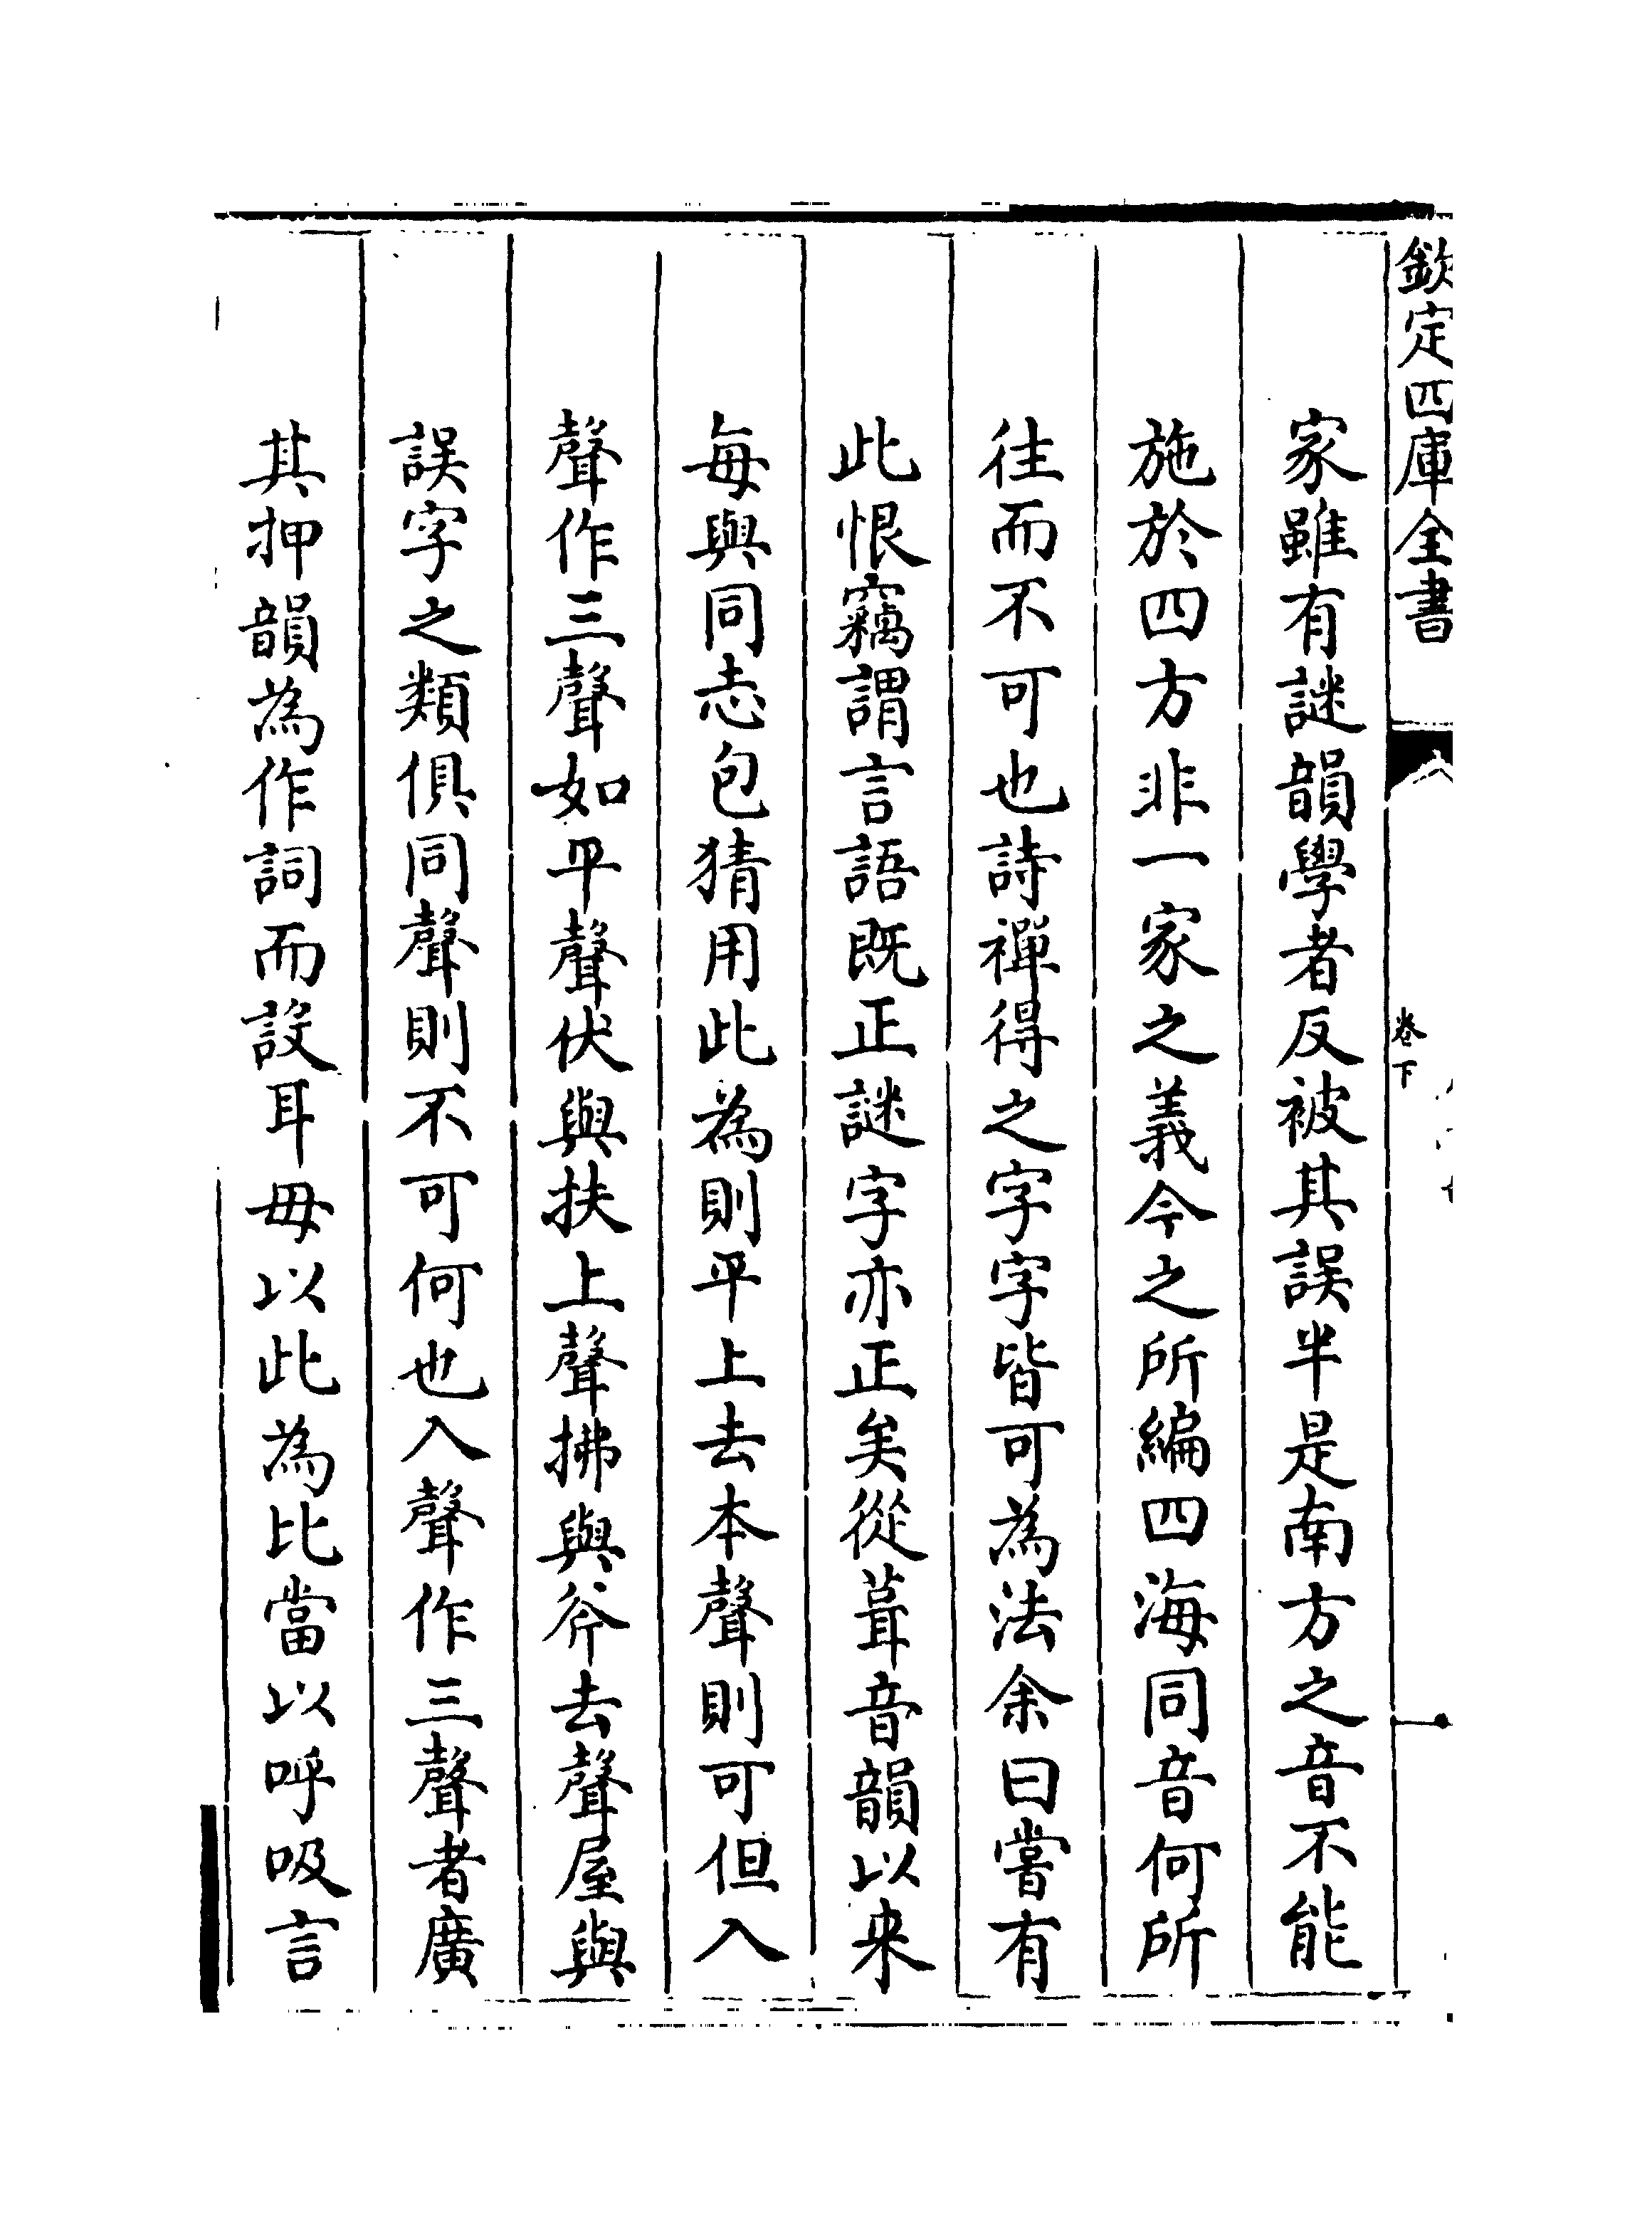 欽定四庫全書
卷下
家雖有謎韻學者反被其誤半是南方之音不能
施於四方非一家之義今之所編四海同音何所
往而不可也詩禪得之字字皆可為法余曰嘗有
此恨竊謂言語既正謎字亦正矣從葺音韻以来
每與同志包猜用此為則平上去本聲則可但入
聲作三聲如平聲伏與扶上聲拂與斧去聲屋與
誤字之類俱同聲則不可何也入聲作三聲者廣
其押韻為作詞而設耳毋以此為比當以呼吸言